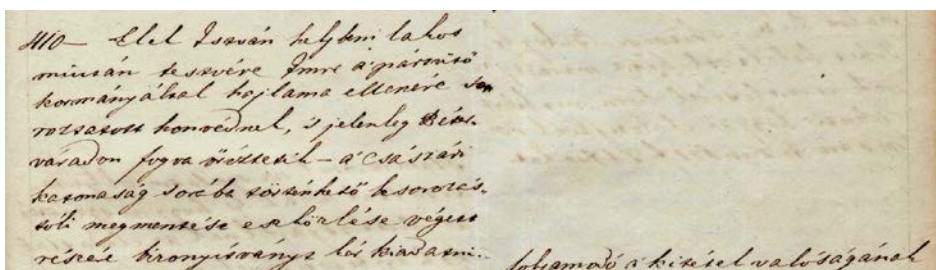 4110— Elel István helybeni lakos
miután tesvére Imre a' pártütő
kormány által hajlama ellenére so-
roztatott honvédnek, 's jelenleg Péter-
váradon fogva őriztetik – a' Császári
katonaság sorába történhető besorozás-
tóli megmentése eszközlése végett
részére bizonyítványt kér kiadatni.-
folyamodó a kitétel valóságának